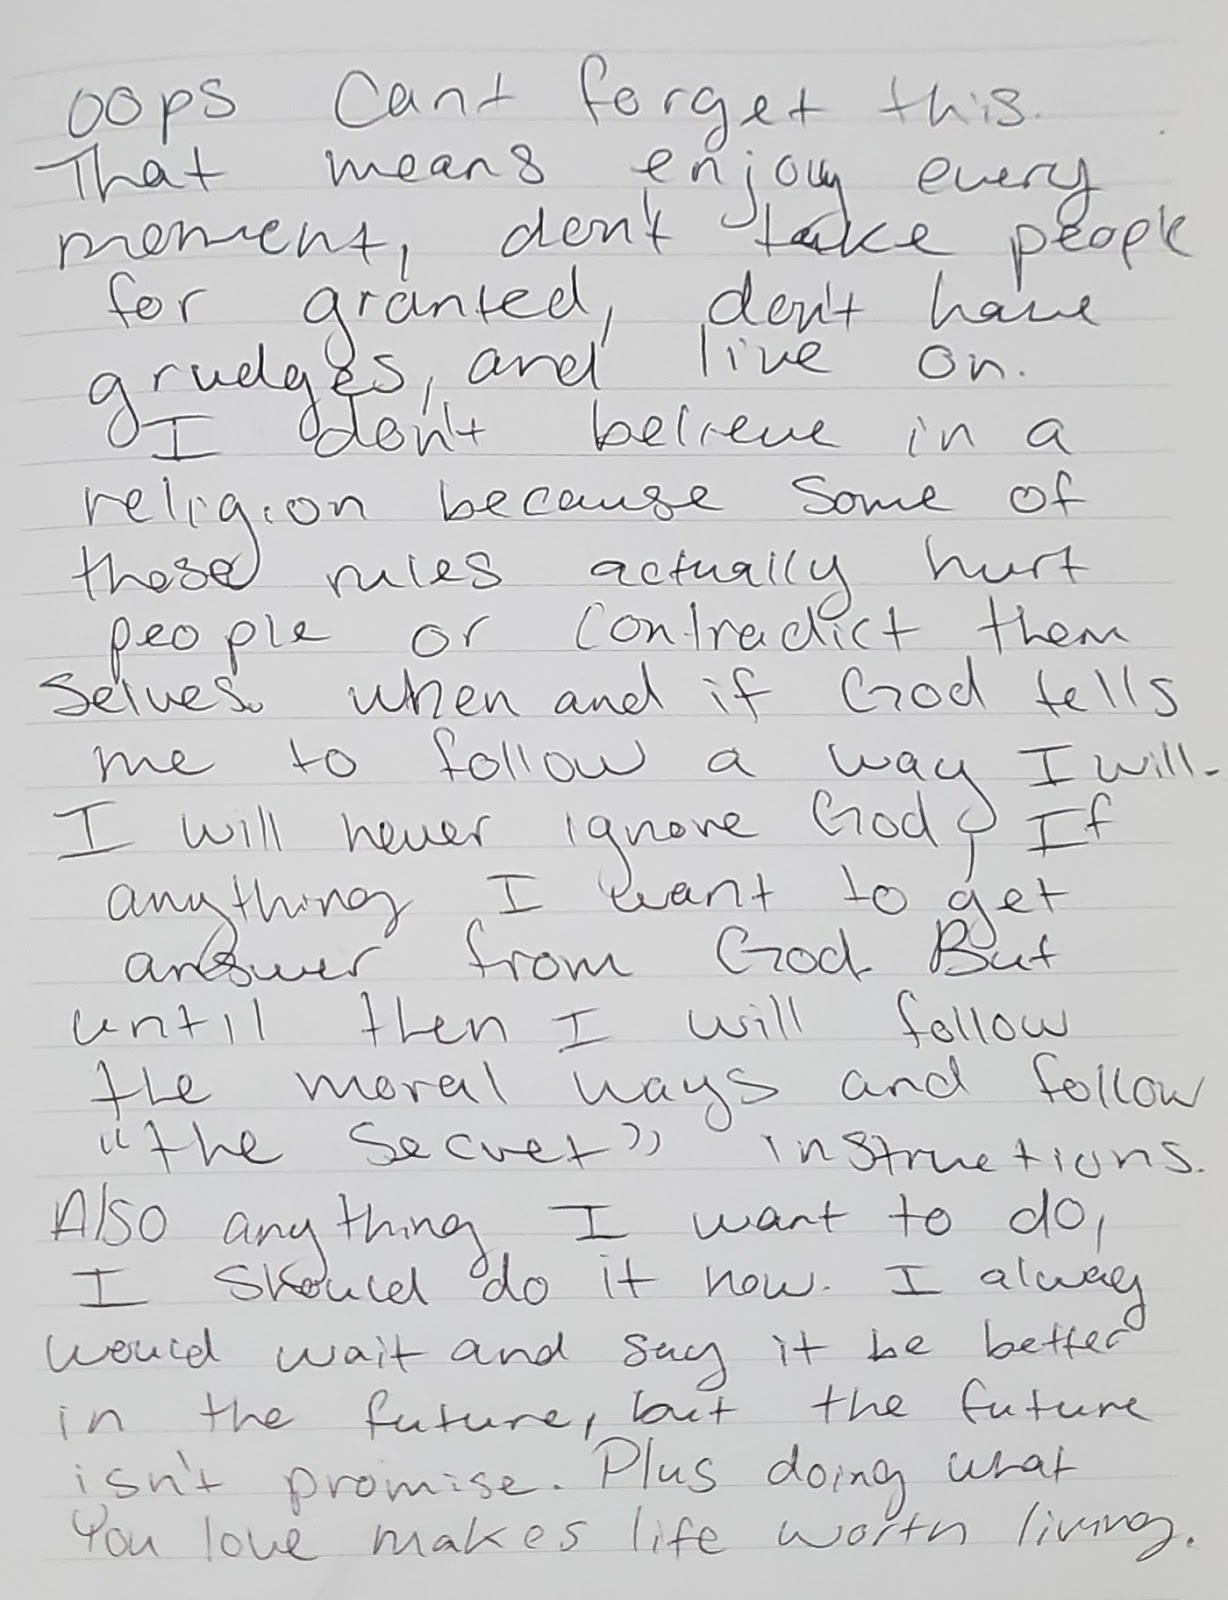 oops Cant forget this.
That means enjoy every
moment, don't take people
for granted, don't have
grudges, and live on.
I don't believe in a
religion because some of
those rules actually hurt
people or contradict them
selves. when and if God tells
me to follow a way I will.
I will never ignore God, If
anything I want to get
answer from God. But
until then I will follow
the moral ways and follow
"the Secret" instructions.
Also anything I want to do,
I should do it now. I alway
would wait and say it be better
in the future, but the future
isn't promise. Plus doing what
You love makes life worth living.